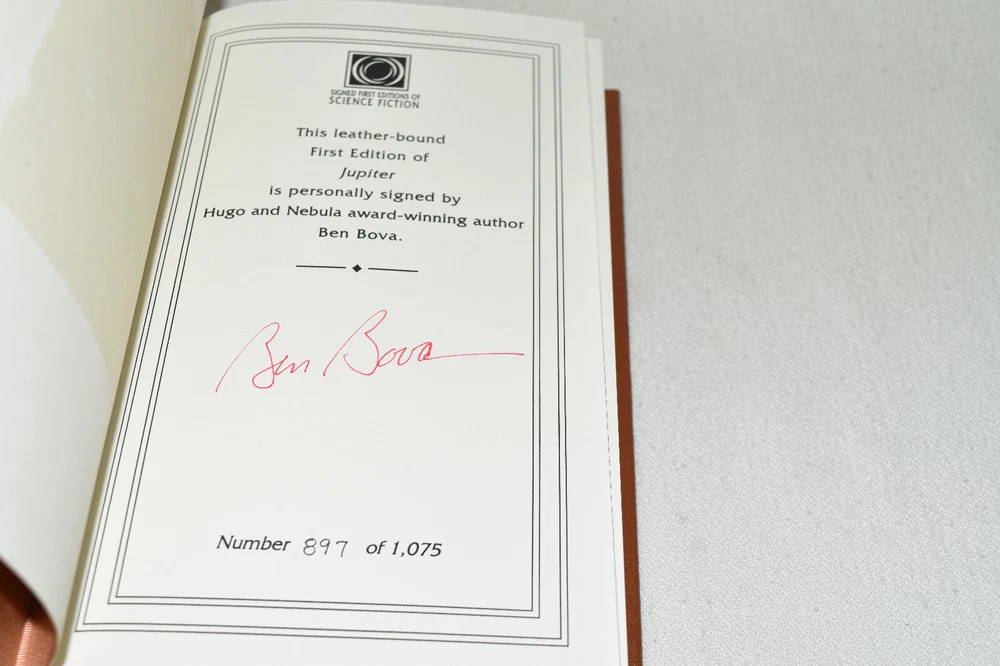 SIGNED FIRST EDITIONS OF
SCIENCE FICTION
This leather-bound
First Edition of
Jupiter
is personally signed by
Hugo and Nebula award-winning author
Ben Bova.
Ben Bova
Number 897 of 1,075